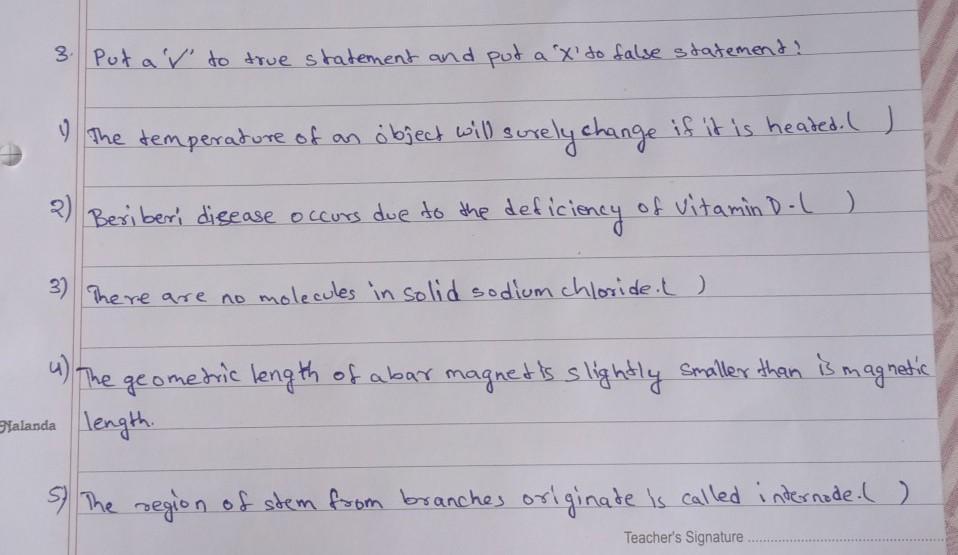 3. Put a '√' to true statement and put a 'x' to false statement!
1) The temperature of an object will surely change if it is heated. ( )
2) Beriberi diseease occurs due to the deficiency of Vitamin D. ( )
3) There are no molecules in solid sodium chloride. ( )
4) The geometric length of a bar magnet is slightly smaller than is magnetic
Nalanda length.
5) The region of stem from branches originate is called internode. ( )
Teacher's Signature ........................................